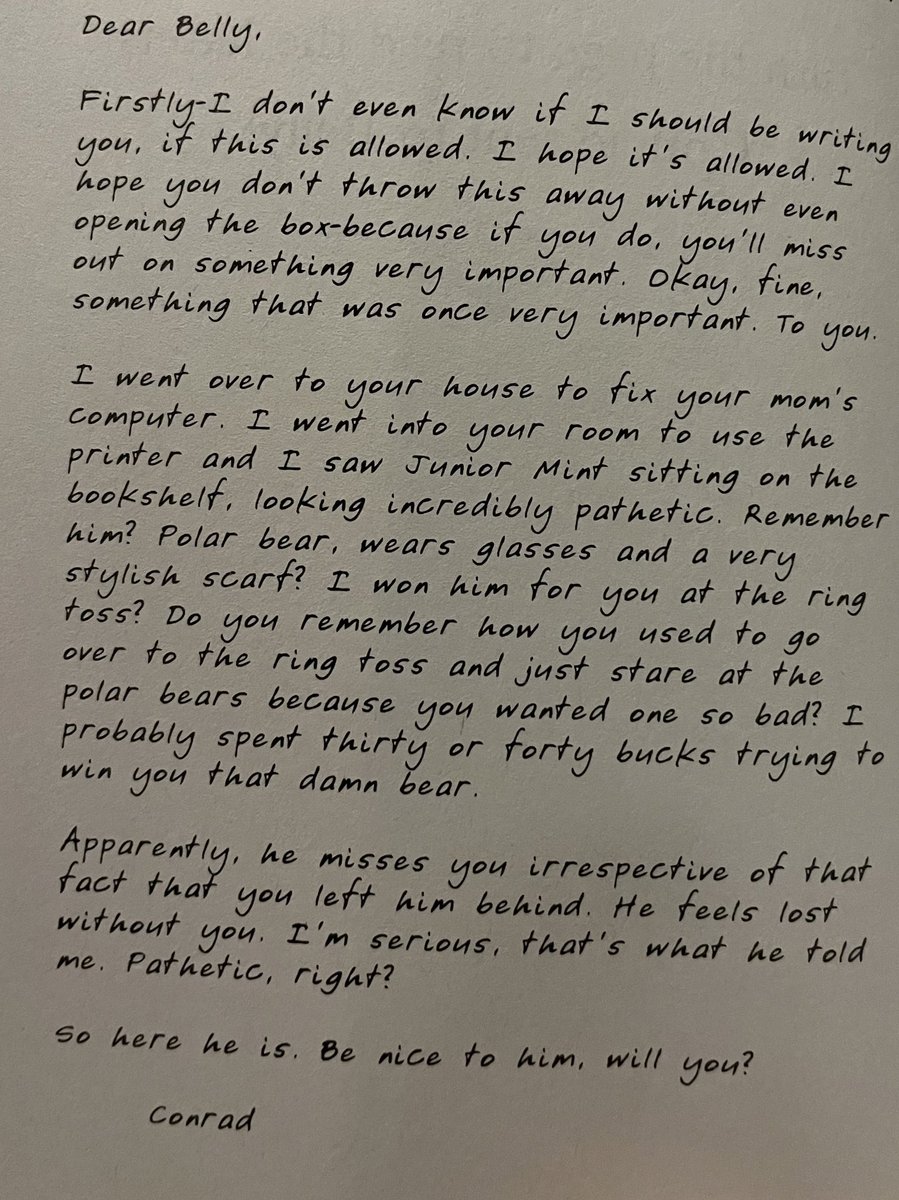 Dear Belly,
Firstly-I don't even know if I should be writing
you, if this is allowed. I hope it's allowed. I
hope you don't throw this away without even
opening the box-because if you do, you'll miss
out on something very important. Okay, fine,
something that was once very important. To you.
I went over to your house to fix your mom's
computer. I went into your room to use the
printer and I saw Junior Mint sitting on the
bookshelf, looking incredibly pathetic. Remember
him? Polar bear, wears glasses and a very
stylish scarf? I won him for you at the ring
toss? Do you remember how you used to go
over to the ring toss and just stare at the
polar bears because you wanted one so bad? I
probably spent thirty or forty bucks trying to
win you that damn bear.
Apparently, he misses you irrespective of that
fact that you left him behind. He feels lost
without you. I'm serious, that's what he told
me. Pathetic, right?
So here he is. Be nice to him, will you?
Conrad